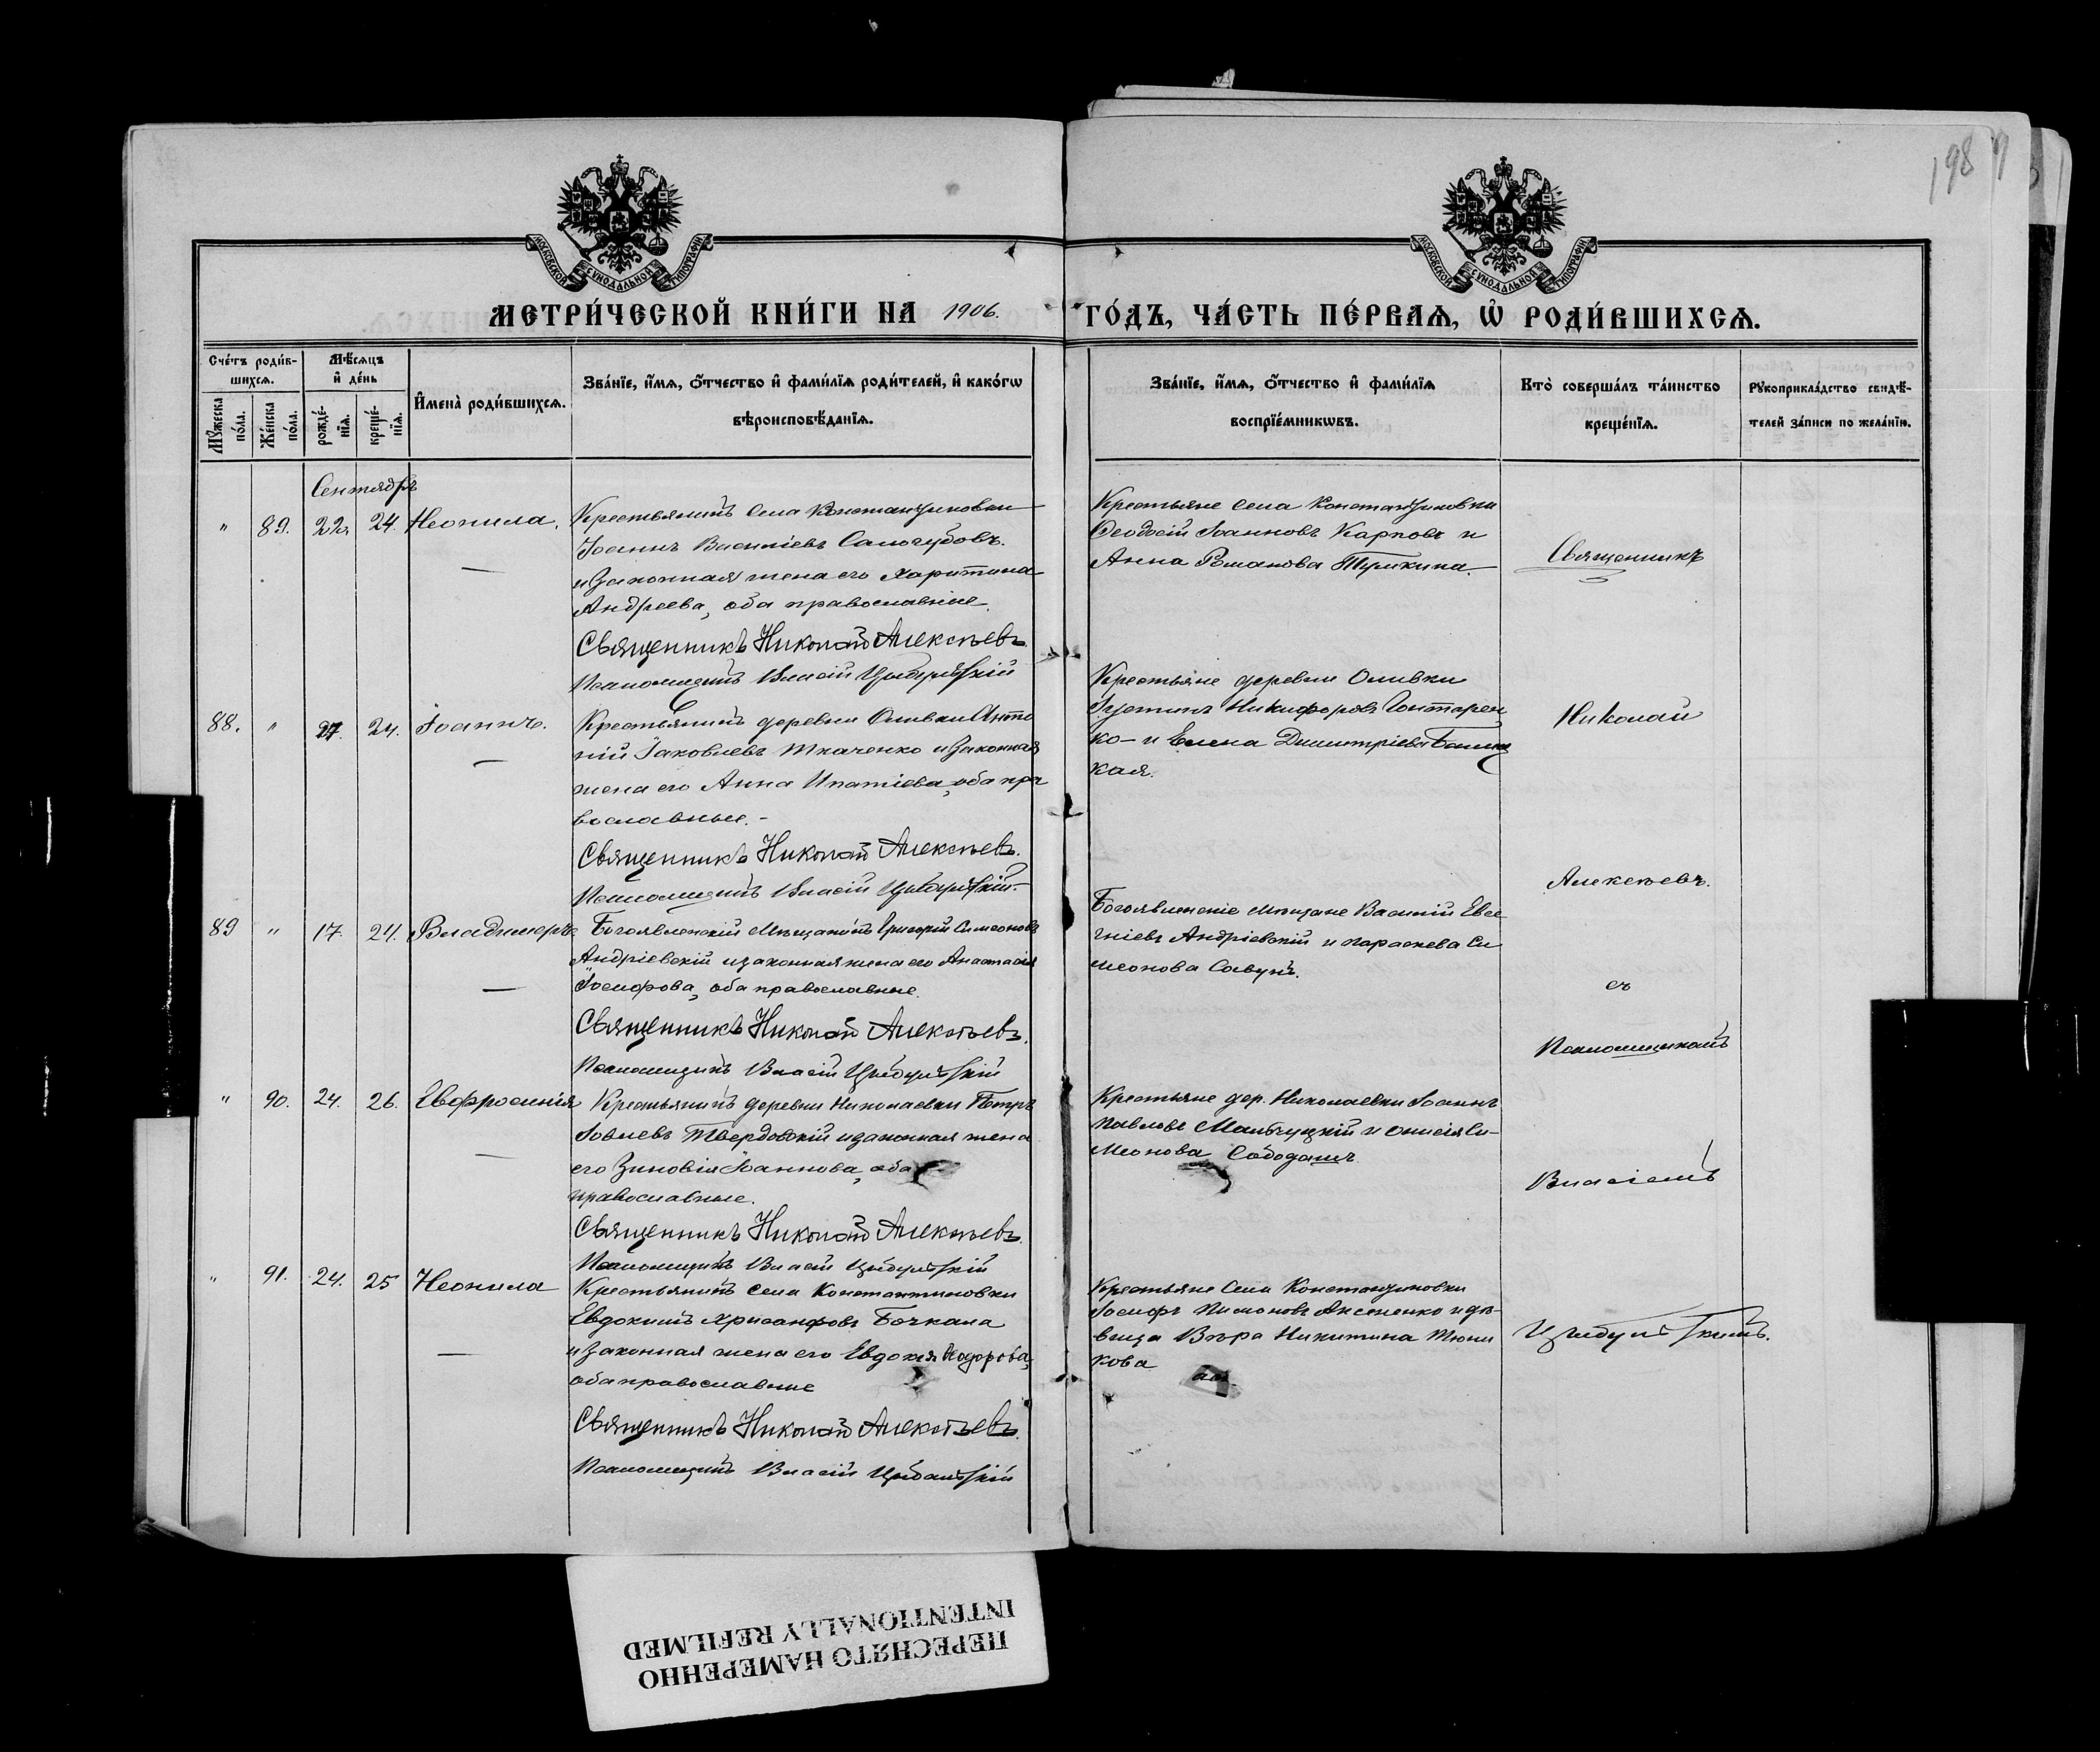 198
МОСКОВСКОЙ СѴНОДАЛЬНОЙ ТИПОГРАФІИ
МОСКОВСКОЙ СѴНОДАЛЬНОЙ ТИПОГРАФІИ
МЕТРИ́ЧЕСКОЙ КНИ́ГИ НА 1906. ГО́ДЪ, ЧА́СТЬ ПЕ́РВАѦ, Ѽ РОДИ́ВШИХСѦ.
Сче́тъ роди́в-
шихсѧ.
Мꙋ́жеска по́ла.
Же́нска по́ла.
Мѣ́сѧцъ
и҆ де́нь
рожде́-
нїѧ.
креще́-
нїѧ.
И҆мена̀ роди́вшихсѧ.
Зва́нїе, и҆́мѧ, ѻ҆́тчество и҆ фами́лїѧ роди́телей, и҆ како́гѡ
вѣроисповѣ́данїѧ.
Зва́нїе, и҆́мѧ, ѻ҆́тчество и҆ фами́лїѧ
воспрїе́мникѡвъ.
Кто̀ соверша́лъ та́инство
креще́нїѧ.
Рꙋкоприкла́дство свидѣ́-
телей за́писи по жела́нїю.
Сентябрь
" 89. 22. 24. Неонила,
Крестьянинъ села Константиновки
Іоаннъ Василіевъ Самочубовъ.
и законная жена его Харитина
Андреева, оба православные.
Священникъ Николай Алексѣевъ.
Псаломщикъ Власій Цыбульскій
Крестьяне села Константиновки
Ѳеодосій Іоанновъ Карповъ и
Анна Романова Тулкина.
88. " 27. 24. Іоаннъ.
Крестьянинъ деревни Оливки Анто
ній Іаковлевъ Ткаченко и законная
жена его Анна Ипатіева, оба пра
вославные.-
Священникъ Николай Алексѣевъ.
Псаломщикъ Власій Цыбульскій.-
Крестьяне деревни Оливки
Іустинъ Никифоровъ Гонтарен
ко- и Елена Димитріева
кая.
89 " 17. 24. Владиміръ
Богоявленскій мѣщанинъ Григорій Симеоновъ
Андріевскій и законная жена его Анастасія
Іосифова, оба православные.
Священникъ Николай Алексѣевъ.
Псаломщикъ Власій Цыбульскій
Богоявленскіе мѣщане Василій Евге
ніевъ Андріевскій и Параскева Си
меонова Савунъ.
" 90. 24. 26. Евфросинія
Крестьянинъ деревни Николаевки Петръ
Іовлевъ Твердовскій и законная жена
его Зиновія Іоаннова, оба
православные.
Священникъ Николай Алексѣевъ.
Псаломщикъ Власій Цыбульскій
Крестьяне дер. Николаевки Іоаннъ
Павловъ и Онисія Си-
меонова
" 91. 24. 25 Неонила
Крестьянинъ села Константиновки
Евдокимъ Хрисанфовъ Бочкала
и законная жена его Евдокія Ѳеодорова,
оба православные
Священникъ Николай Алексѣевъ.
Псаломщикъ Власій Цыбульскій
Крестьяне села Константиновки
Іосифъ Пимоновъ Аксененко и дѣ-
вица Вѣра Никитина Тюни
кова
Священникъ
Николай
Алексѣевъ.
съ
Псаломщикомъ
Власіемъ
Цыбульскимъ.
ПЕРЕСНЯТО НАМЕРЕННО
INTENTIONALLY REFILMED